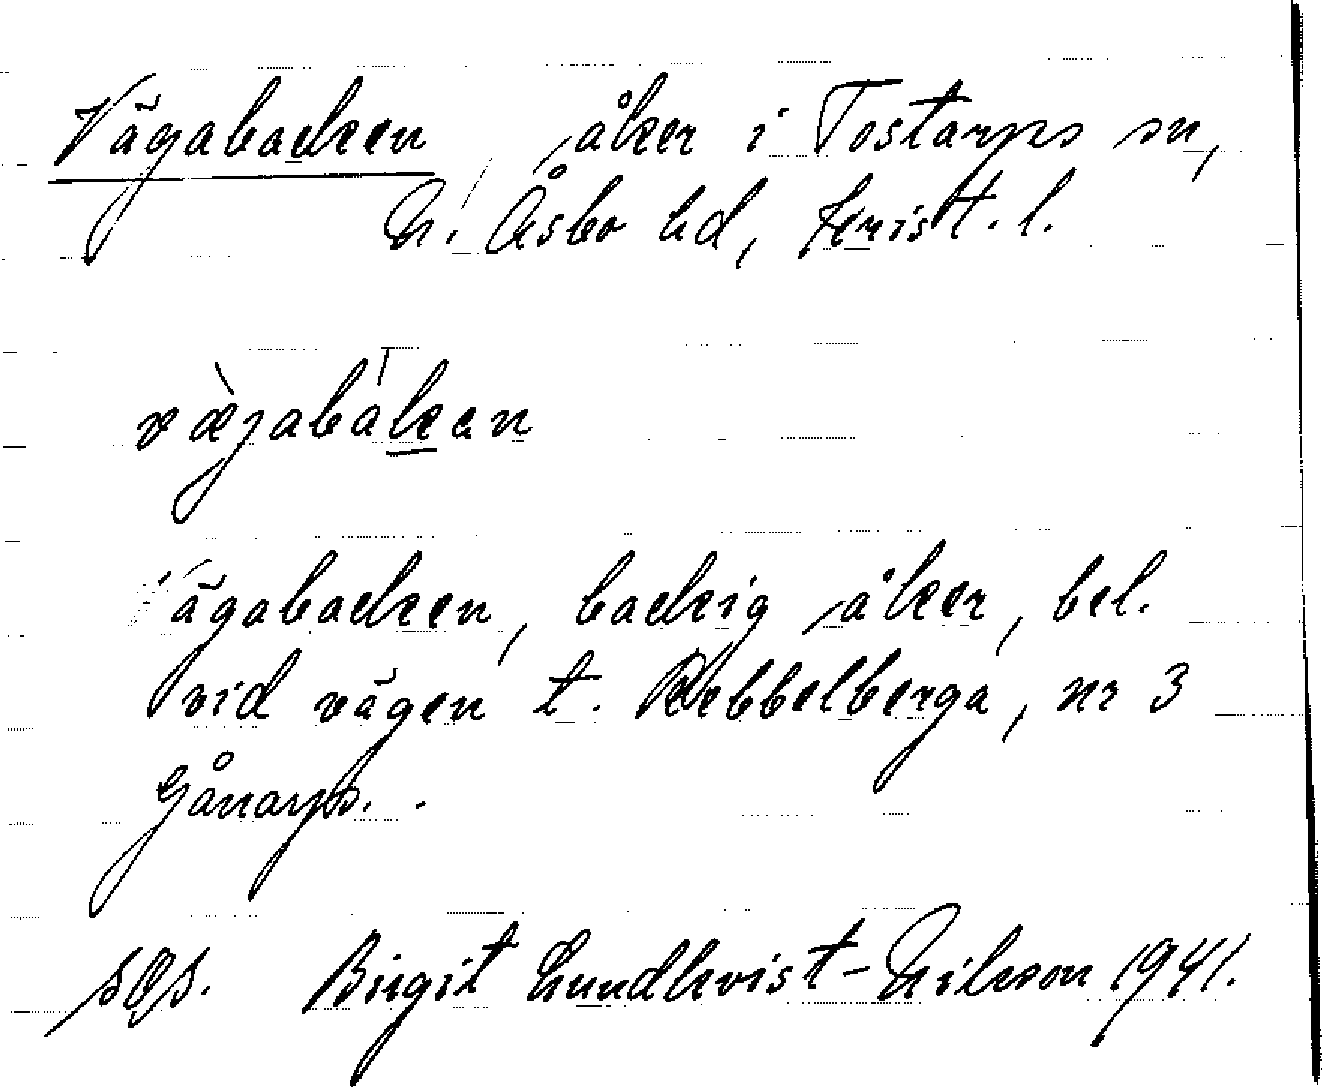 Vägabacken, åker i Tostarps sn,
N. Åsbo hd, Krist. l.
væ̀jabákan
Vägabacken, backig åker, bel.
vid vägen t. Rebbelberga, nr 3
Gånarp.
sOs. Birgit Lundkvist-Nilsson 1941.